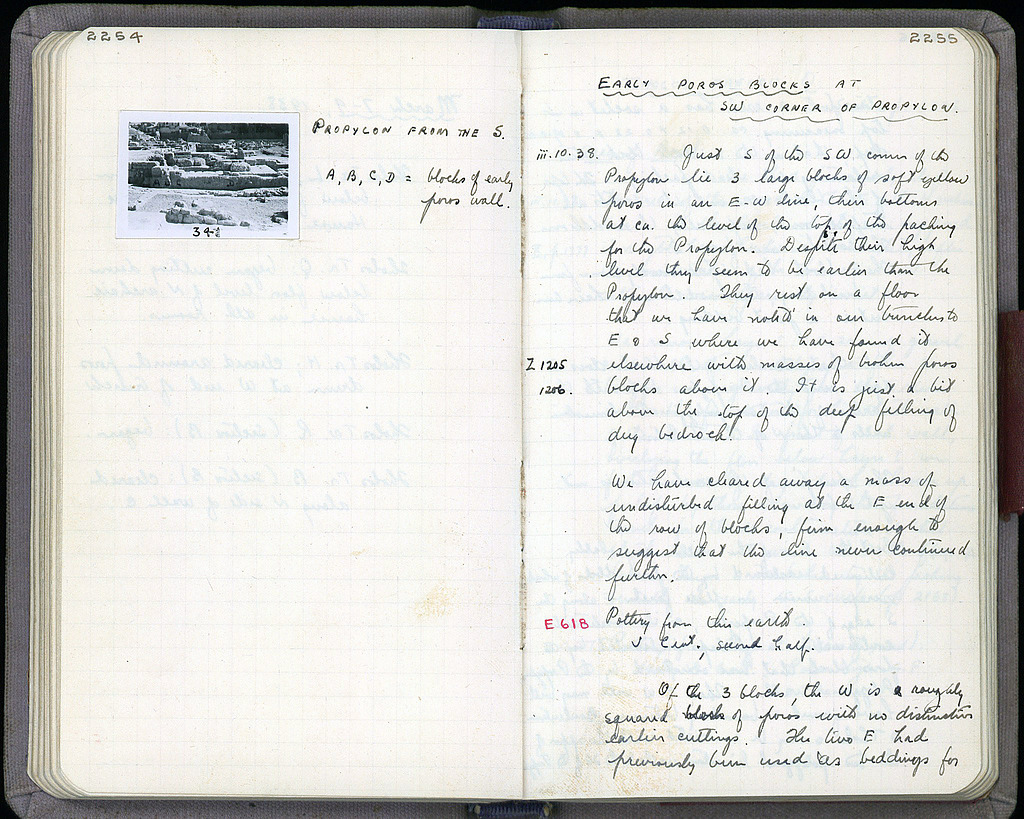 2254
PROPYLON FROM THE S.
A, B, C, D = blocks of early
poros wall.
34
2255
EARLY POROS BLOCKS AT
SW CORNER OF PROPYLON.
iii.10.38. Just S of the SW corner of the
Propylon lie 3 large blocks of soft yellow
poros in an E-W line, their bottoms
at ca. the level of the top of the packing
for the Propylon. Despite their high
level they seem to be earlier than the
Propylon. They rest on a floor
that we have noted in our trenches to
E & S where we have found it
Z 1205 elsewhere with masses of broken poros
1206. blocks above it. It is just a bit
above the top of the deep filling of
dug bedrock.
We have cleared away a mass of
undisturbed filling at the E end of
the row of blocks, firm enough to
suggest that the line never continued
further.
E 61B Pottery from this earth
V Cent., second half.
Of the 3 blocks, the W is a roughly
squared block of poros with no distinctive
earlier cuttings. The two E had
previously been used as beddings for